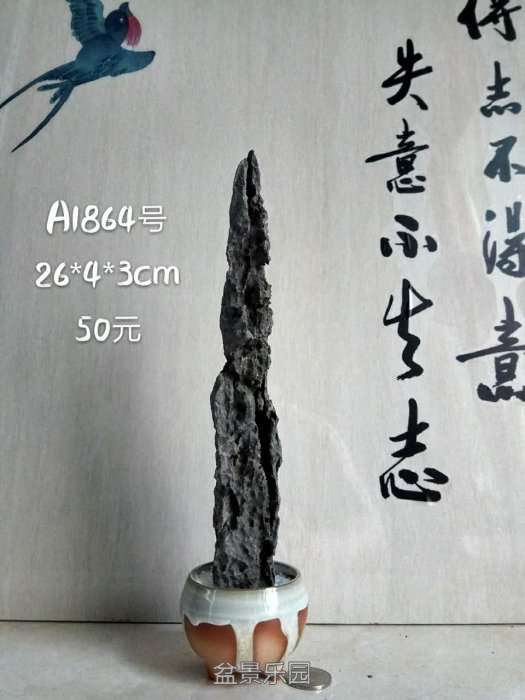 得志不得意
失意不失志
A1864号
26*4*3cm
50元
盆景乐园